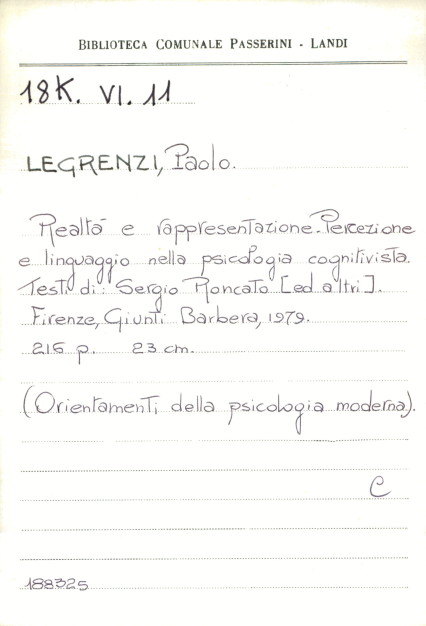 BIBLIOTECA COMUNALE PASSERINI - LANDI
18K. VI. 11
LEGRENZI, Paolo.
Realtà e rappresentazione. Percezione
e linguaggio nella psicologia cognitivista.
Testi di: Sergio Roncato [ed altri].
Firenze, Giunti Barbera, 1979.
215 p. 23 cm.
(Orientamenti della psicologia moderna).
C
188325